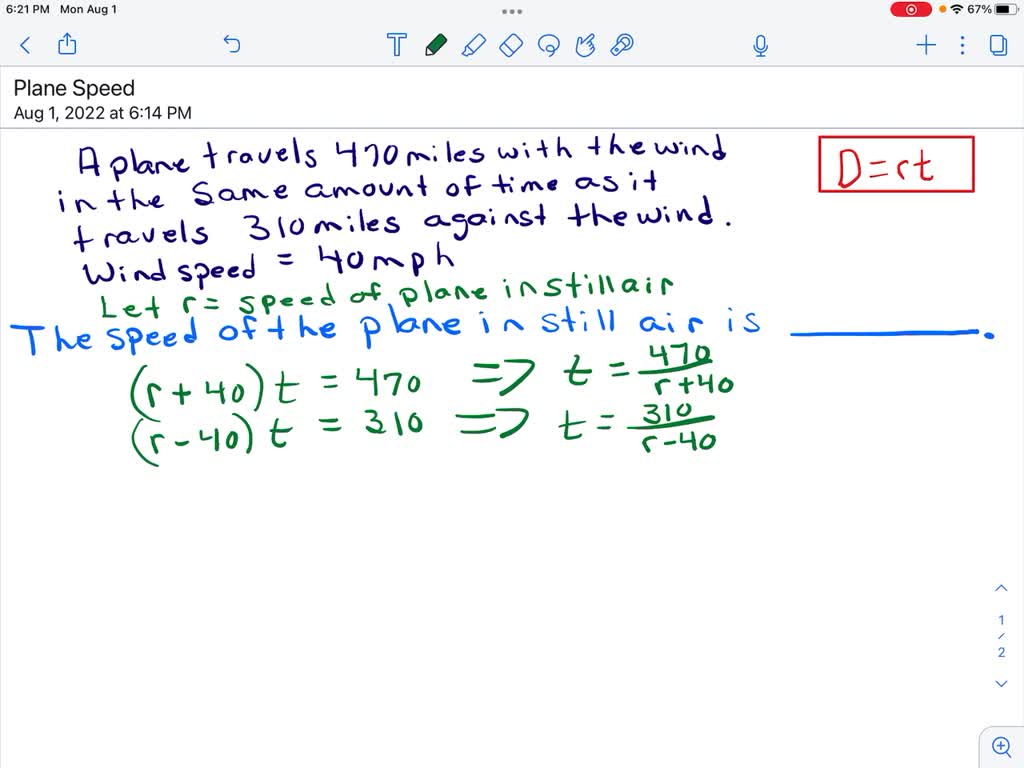 6:21 PM Mon Aug 1
67%
T
Plane Speed
Aug 1, 2022 at 6:14 PM
A plane travels 470 miles with the wind
in the same amount of time as it
travels 310 miles against the wind.
Wind speed = 40 mph
D=rt
Let r = speed of plane in still air
The speed of the plane in still air is ______.
(r+40)t = 470 => t = 470/r+40
(r-40)t = 310 => t = 310/r-40
1
/
2